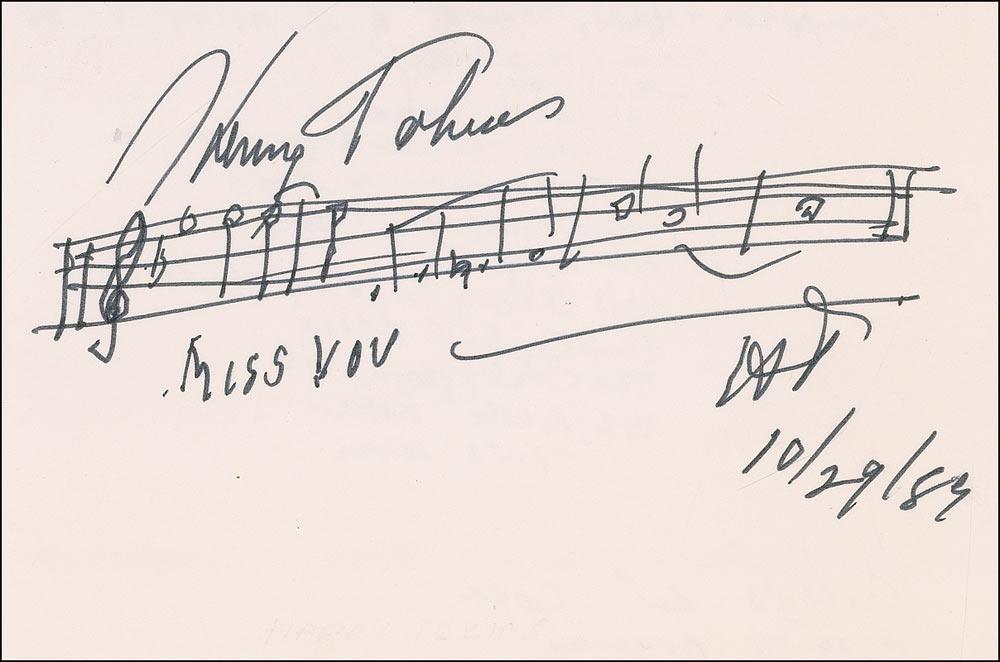 Henry Tobias
MISS YOU
HT
10/29/83